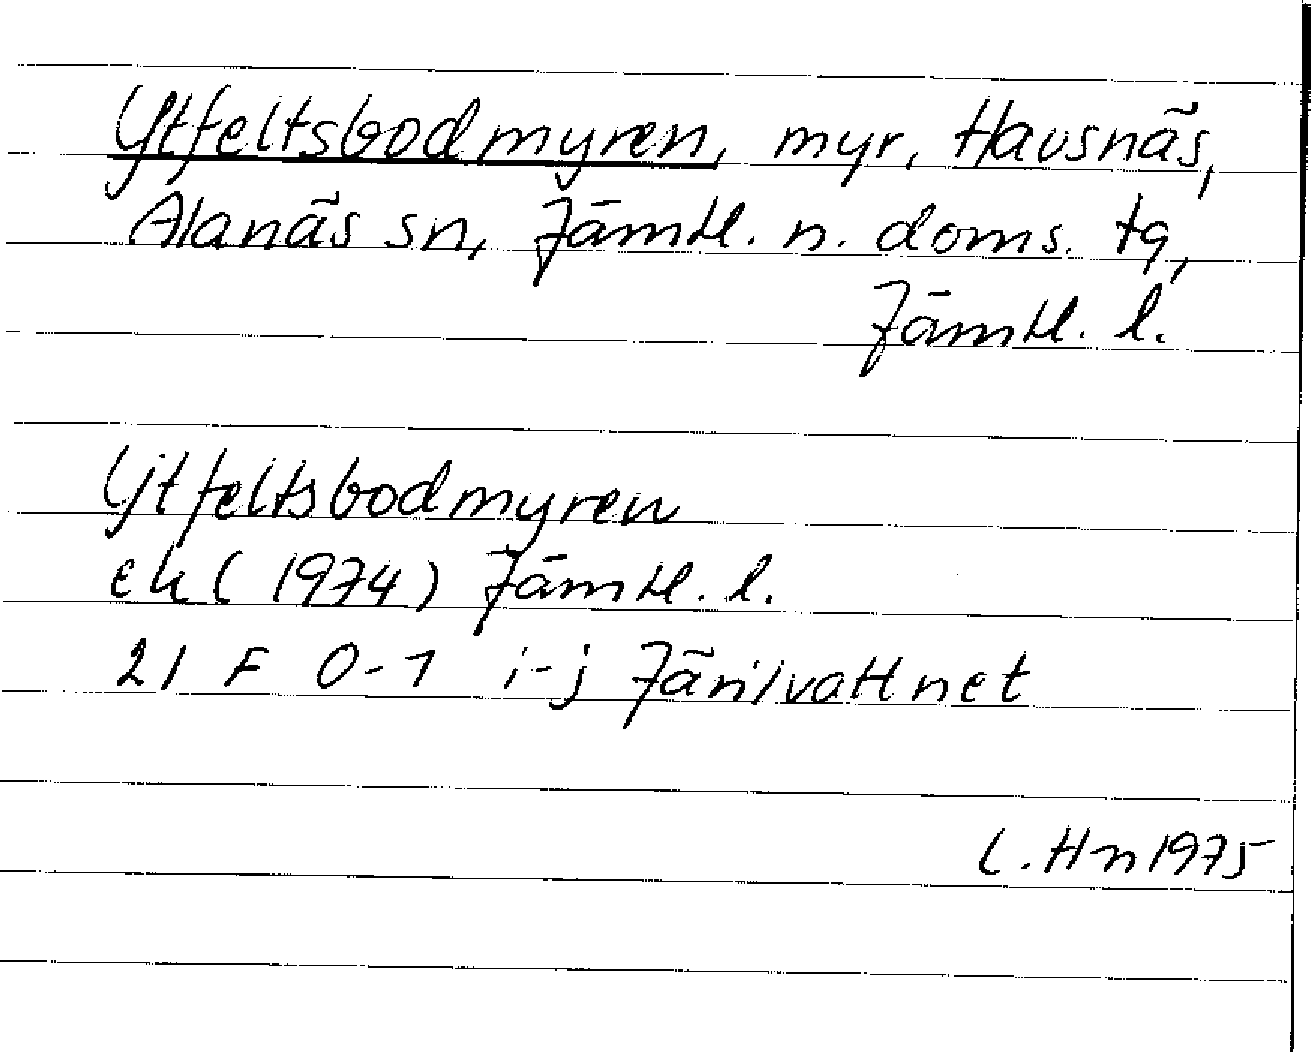 Ytfeltsbodmyren, myr, Havsnäs,
Alanäs sn, Jämtl. n. doms. tg,
Jämtl. l.
Ytfeltsbodmyren
ek (1974) Jämtl. l.
21 F 0-1 i-j Järilvattnet
L. Hn 1975